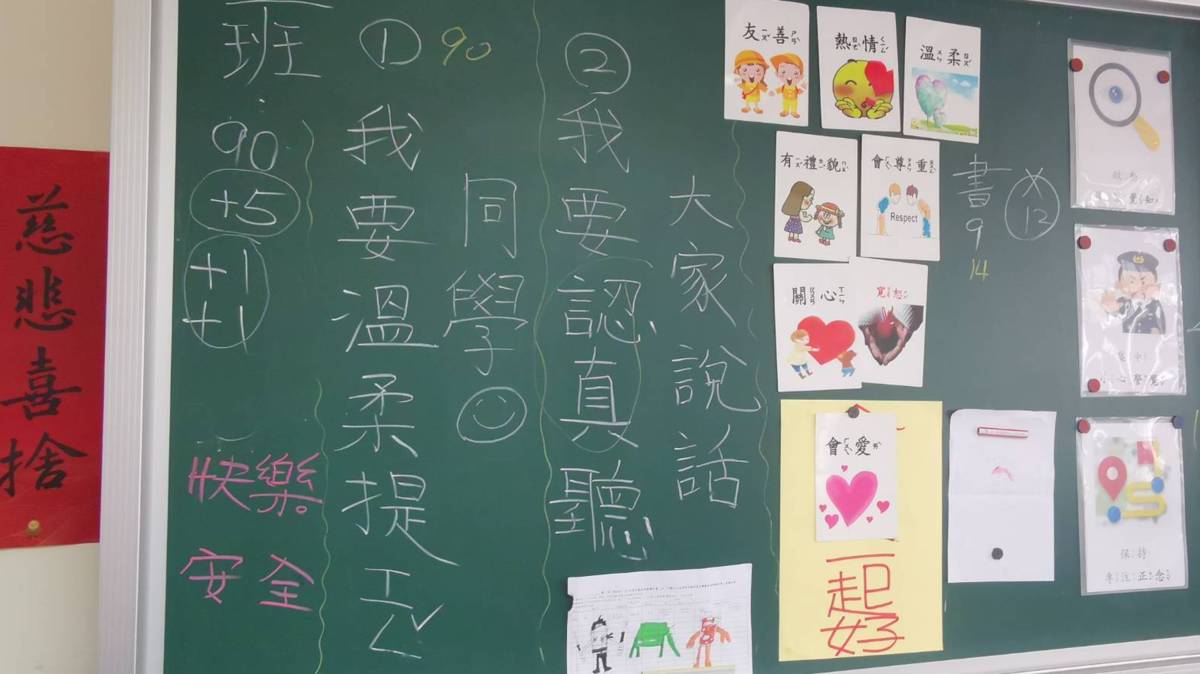 慈悲喜捨
班
90
+5
+1
+1
快樂
安全
① 90
我要溫柔提ㄒㄧㄥˇ
同學
②
我要認真聽
大家說話
友善
熱情
溫柔
有禮貌
會尊重
Respect
關心
寬恕
會愛
一起好
書
9
14
12
覺知
心警覺
保持
專注正念